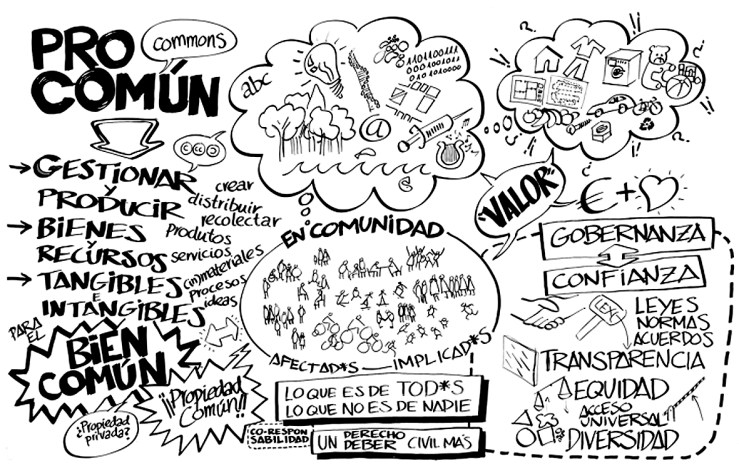 PRO
COMÚN
commons
(CC)
→ GESTIONAR
Y
PRODUCIR
→ BIENES
Y
RECURSOS
→ TANGIBLES
E
INTANGIBLES
crear
distribuir
recolectar
Produtos
servicios
(in)materiales
Procesos
ideas
PARA
EL
BIEN
COMÚN
¿Propiedad
privada?
¡¡Propiedad
Común!!
abc
@
EN COMUNIDAD
AFECTAD*S — IMPLICAD*S
LO QUE ES DE TOD*S
LO QUE NO ES DE NADIE
CO-RESPON
SABILIDAD
UN DERECHO
DEBER CIVIL MÁS
"VALOR"
€ + ♡
GOBERNANZA
CONFIANZA
LEX
LEYES
NORMAS
ACUERDOS
TRANSPARENCIA
EQUIDAD
ACCESO
UNIVERSAL
DIVERSIDAD